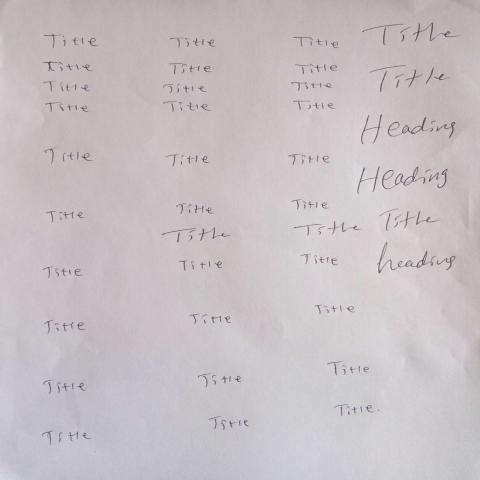 Title Title Title Title
Title Title Title Title
Title Title Title
Title Title Title
Heading
Title Title Title
Heading
Title Title Title
Title Title Title
Title Title Title heading
Title Title Title
Title Title Title
Title Title Title.